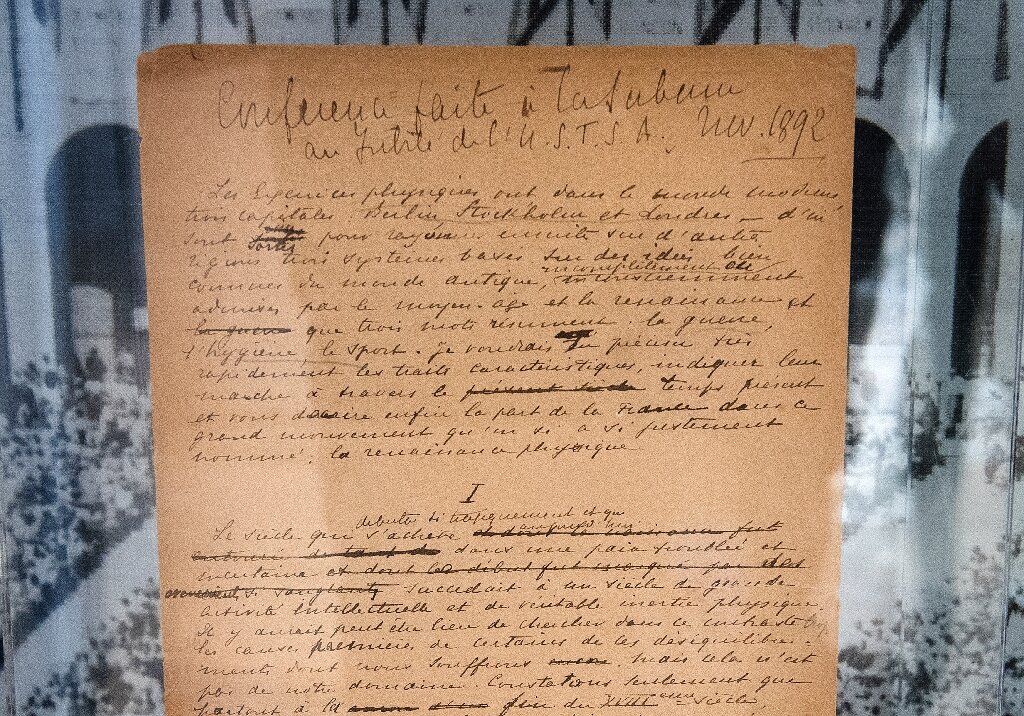 Conférence faite à la Sorbonne
au Jubilé de l'U.S.F.S.A. Nov. 1892
Les Exercices physiques ont dans le monde moderne
trois capitales Berlin Stockholm et Londres — d'où
sont sortis pour rayonner ensuite sur d'autres
régions trois systèmes basés sur des idées bien
connues du monde antique, incomplètement ou
inconsciemment
admises par le moyen-age et la renaissance et
la guerre que trois mots résument : la guerre,
l'hygiène, le sport. Je voudrais en préciser très
rapidement les traits caractéristiques, indiquer leur
marche à travers le présent siècle temps présent
et vous dire enfin la part de la France dans ce
grand mouvement qu'on a si justement
nommé : la renaissance physique
I
débuta si tragiquement et qui
Le siècle qui s'achève et dont la fut
dans une paix troublée et
incertaine et dont le début fut marqué par des
évènements si sanglants succédait à un siècle de grande
activité intellectuelle et de véritable inertie physique.
Il y aurait peut être lieu de chercher dans ce contraste
les causes premières de certains de ces déséquilibre-
ments dont nous souffrons. Mais cela n'est
pas de notre domaine. Constatons seulement que
partout à la fin du XVIIIème siècle,